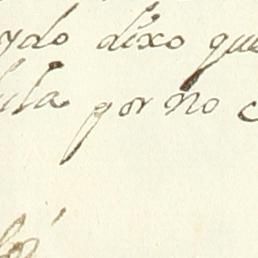 ydo dixo que
ula por no c